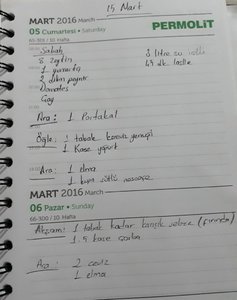 15 Mart
MART 2016 March
PERMOLİT
05 Cumartesi • Saturday
65-301 / 10. Hafta
Sabah
3 litre su içildi
8 zeytin
1 yumurta
2 dilim peynir
Domates
Çay
Ara : 1 Portakal
Öğle : 1 tabak karnıb. yemeği
1 Kase yoğurt
Ara : 1 elma
1 kupa sütlü nescafe
MART 2016 March
06 Pazar • Sunday
66-300 / 10. Hafta
Akşam : 1 tabak kadar karışık sebze (fırında)
1.5 kase çorba
Ara : 2 ceviz
1 elma